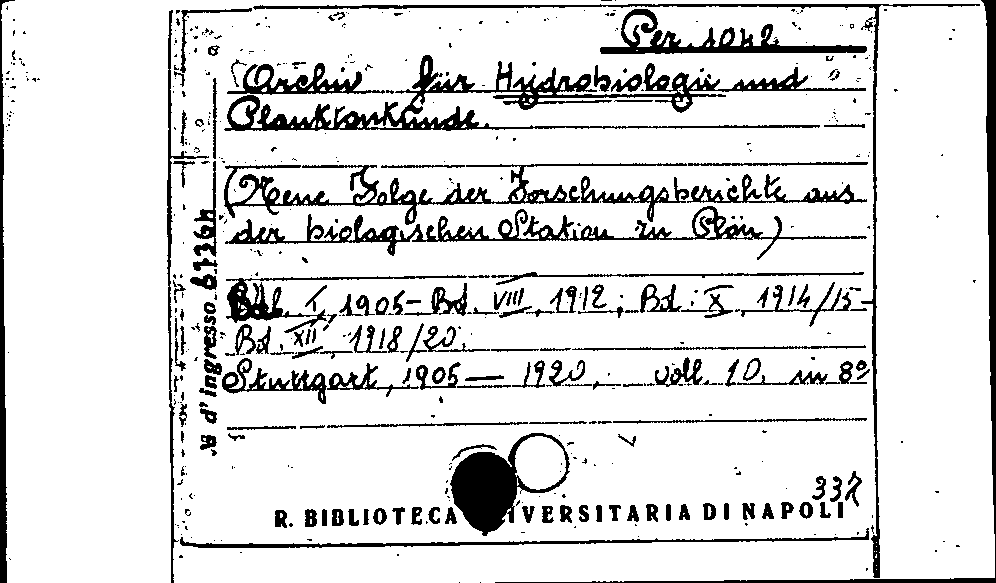 Per. 1042
Archiv für Hydrobiologie und
Planktonkunde.
(Neue Folge der Forschungsberichte aus
der biologischen Station zu Plön)
Bd. I, 1905 - Bd. VIII, 1912; Bd. X, 1914/15 -
Bd. XII, 1918/20.
Stuttgart, 1905 — 1920, voll. 10. in 8º
№ d'ingresso
R. BIBLIOTECA UNIVERSITARIA DI NAPOLI